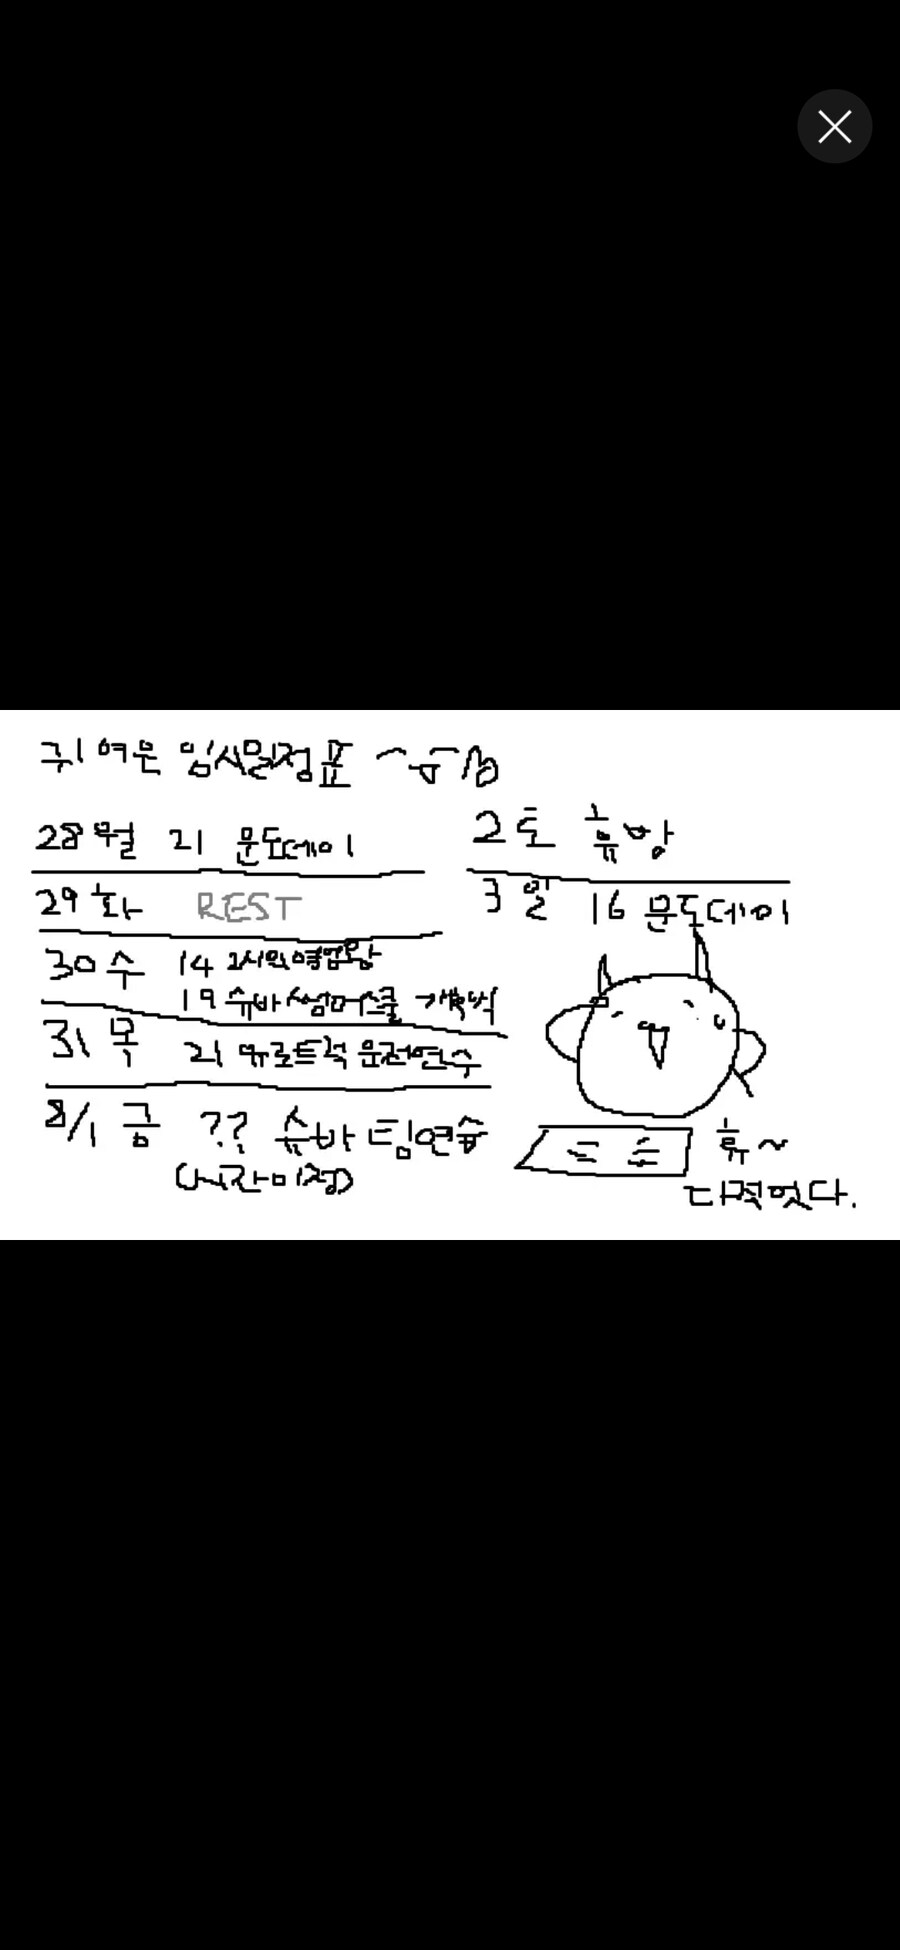 귀여운 임시일정표
28 월 21 문도데이
29 화 REST
30 수 14 2시의
19 슈바 섬머스쿨 개막식
31 목 21 유로트럭 운전연수
8/1 금 ?? 슈바 팀연습
(시간미정)
2 토 휴방
3 일 16 문도데이
휴~
다적엇다.